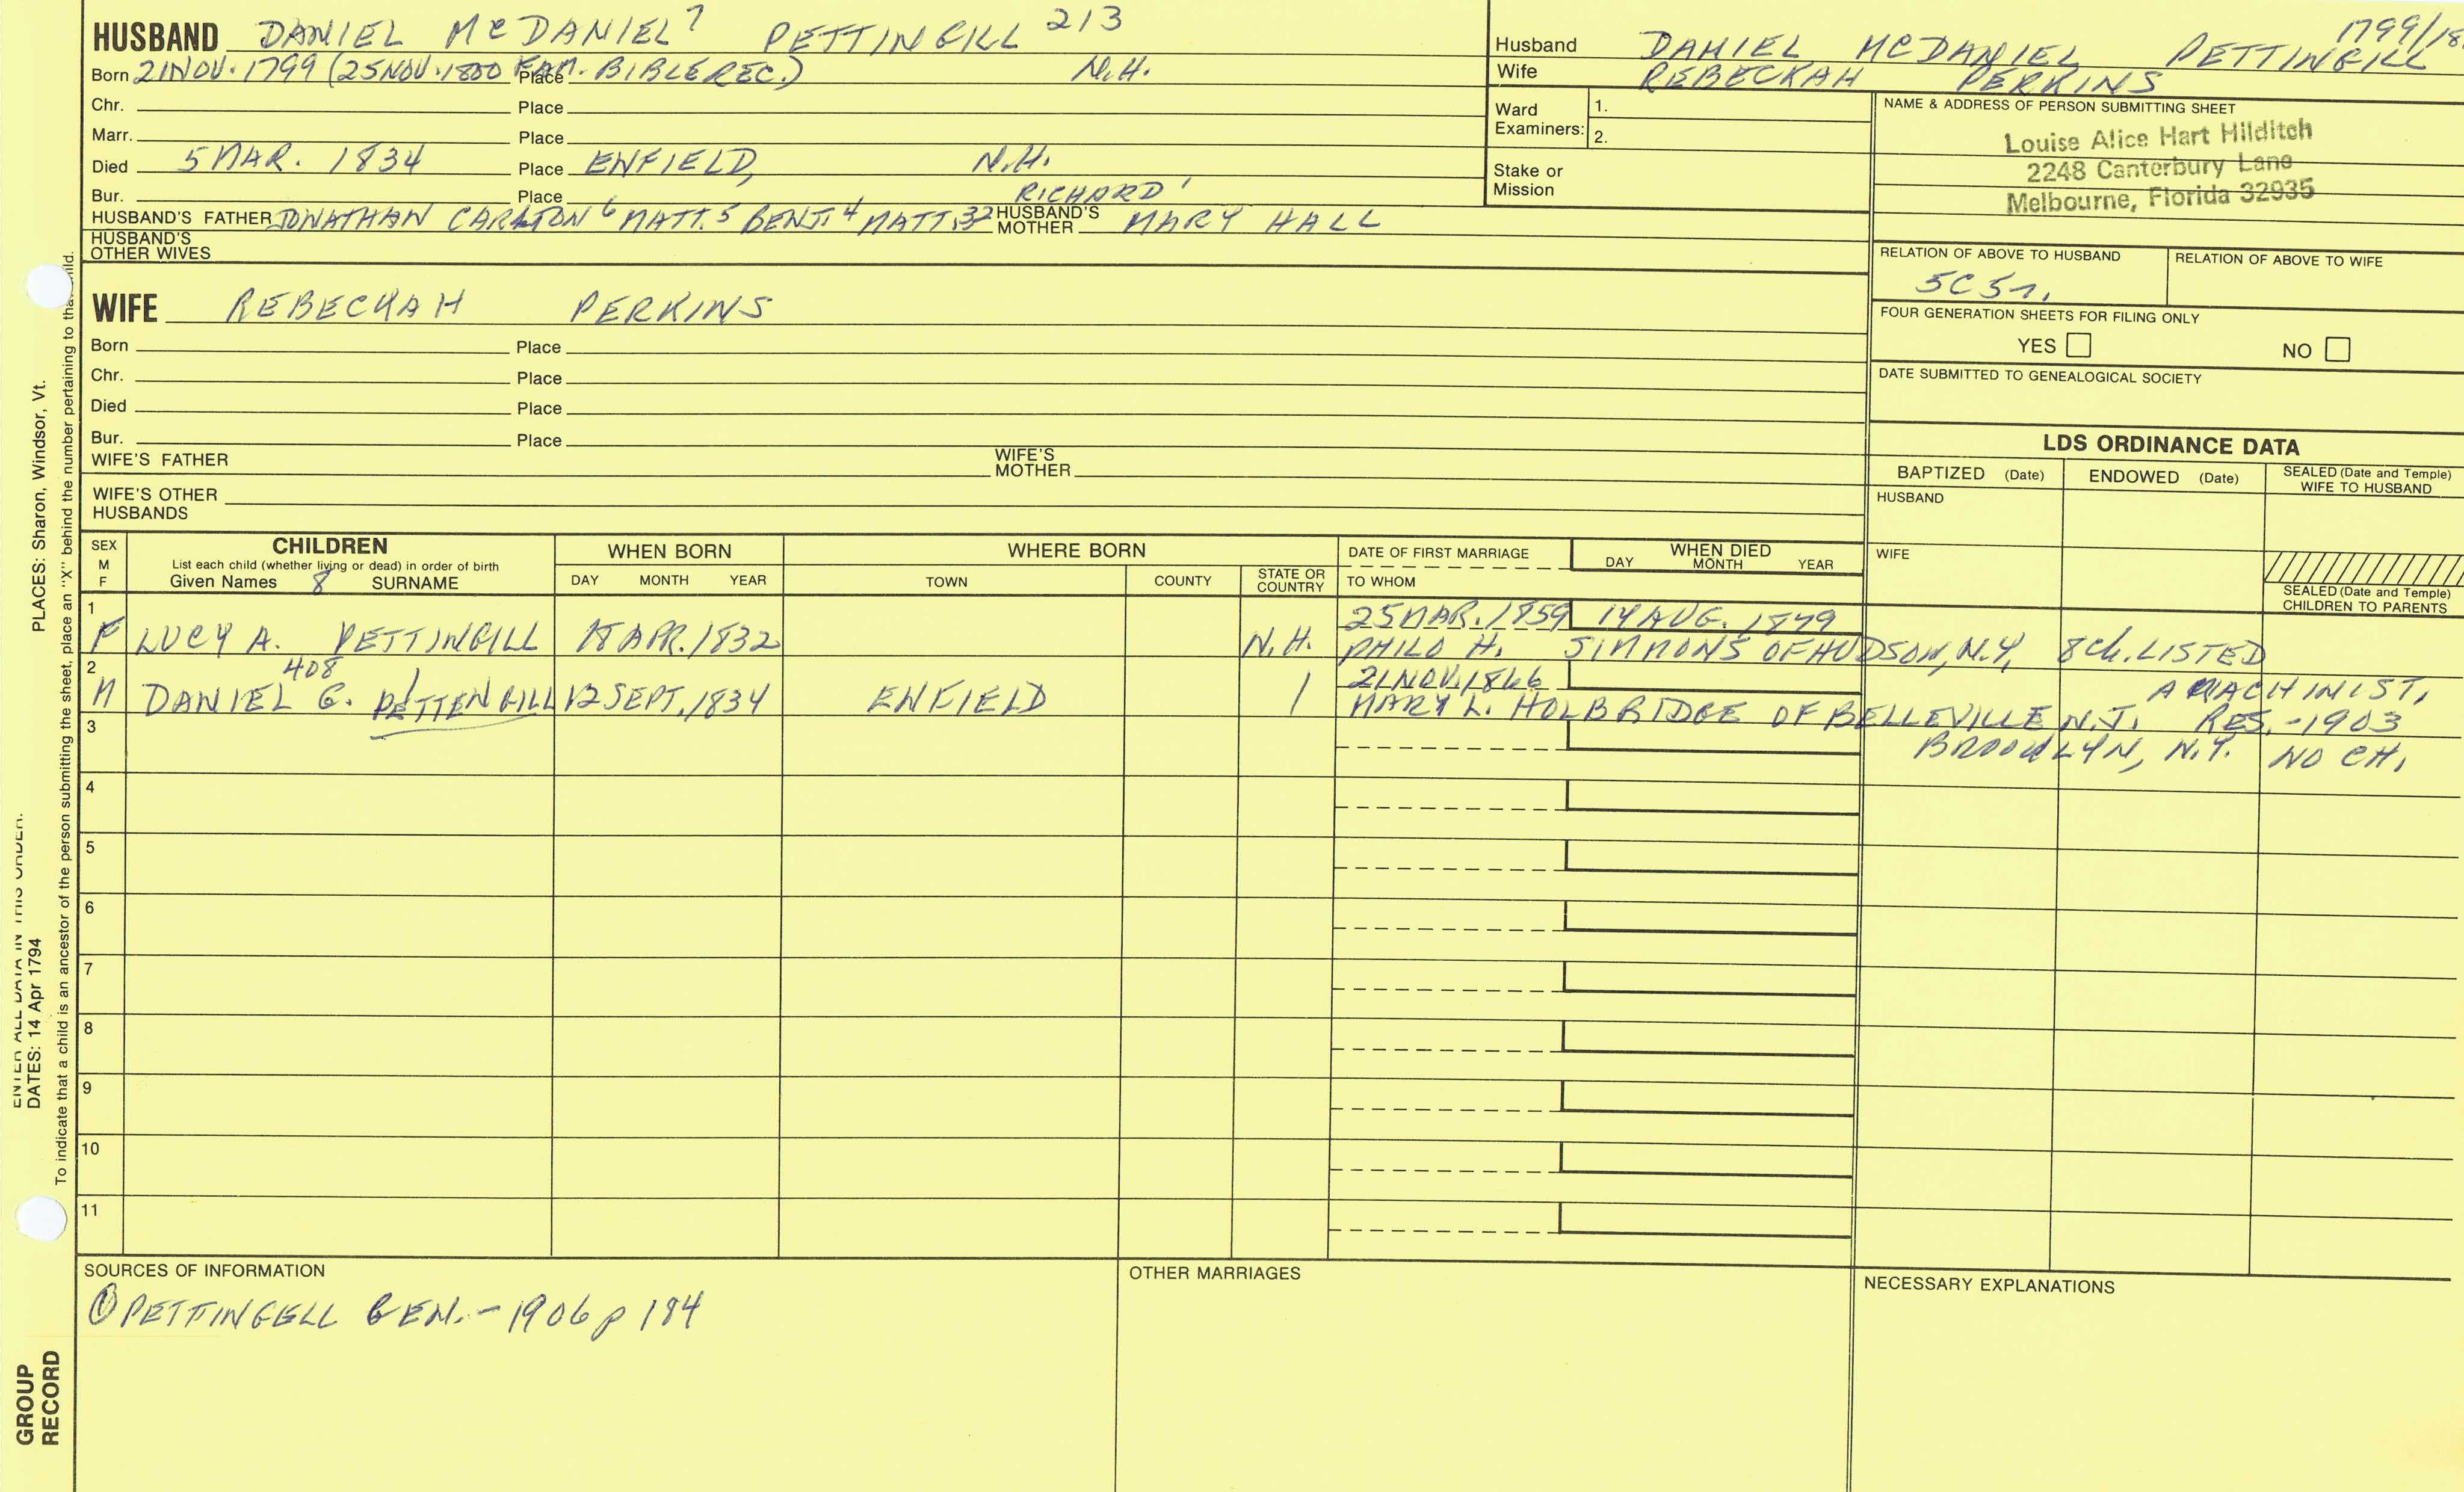 HUSBAND DANIEL McDANIEL 7 PETTINGILL 213
Born 21 NOV. 1799 (25 NOV. 1800 FAM. BIBLE REC.) Place N.H.
Chr. Place
Marr. Place
Died 5 MAR. 1834 Place ENFIELD, N.H.
Bur. Place RICHARD 1
HUSBAND'S FATHER JONATHAN CARLTON 6 MATT. 5 BENJ. 4 MATT. 3 2 HUSBAND'S MOTHER MARY HALL
HUSBAND'S OTHER WIVES
WIFE REBECKAH PERKINS
Born Place
Chr. Place
Died Place
Bur. Place
WIFE'S FATHER WIFE'S MOTHER
WIFE'S OTHER HUSBANDS
1799/18
Husband DANIEL MCDANIEL PETTINGILL
Wife REBECKAH PERKINS
Ward Examiners: 1.
2.
Stake or Mission
NAME & ADDRESS OF PERSON SUBMITTING SHEET
Louise Alice Hart Hilditch
2248 Canterbury Lane
Melbourne, Florida 32935
RELATION OF ABOVE TO HUSBAND RELATION OF ABOVE TO WIFE
5C5r.
FOUR GENERATION SHEETS FOR FILING ONLY
YES NO
DATE SUBMITTED TO GENEALOGICAL SOCIETY
LDS ORDINANCE DATA
BAPTIZED (Date) ENDOWED (Date) SEALED (Date and Temple) WIFE TO HUSBAND
HUSBAND
WIFE
SEALED (Date and Temple) CHILDREN TO PARENTS
SEX M F
CHILDREN
List each child (whether living or dead) in order of birth
Given Names 8 SURNAME
WHEN BORN
DAY MONTH YEAR
WHERE BORN
TOWN COUNTY STATE OR COUNTRY
DATE OF FIRST MARRIAGE
TO WHOM
WHEN DIED
DAY MONTH YEAR
1 25 MAR. 1859 14 AUG. 1879
F LUCY A. PETTINGILL 18 APR. 1832 N.H. PHILO H. SIMMONS OF HUDSON, N.Y. 8 Ch. LISTED
2 408 21 NOV. 1866 A MACHINIST,
M DANIEL G. PETTENGILL 12 SEPT. 1834 ENFIELD MARY L. HOLBRIDGE OF BELLEVILLE N.J. RES.-1903
3 BROOKLYN, N.Y. NO CH.
4
5
6
7
8
9
10
11
SOURCES OF INFORMATION OTHER MARRIAGES NECESSARY EXPLANATIONS
① PETTINGELL GEN. - 1906 p 184
ENTER ALL DATA IN THIS ORDER:
DATES: 14 Apr 1794 PLACES: Sharon, Windsor, Vt.
To indicate that a child is an ancestor of the person submitting the sheet, place an "X" behind the number pertaining to that child.
GROUP
RECORD